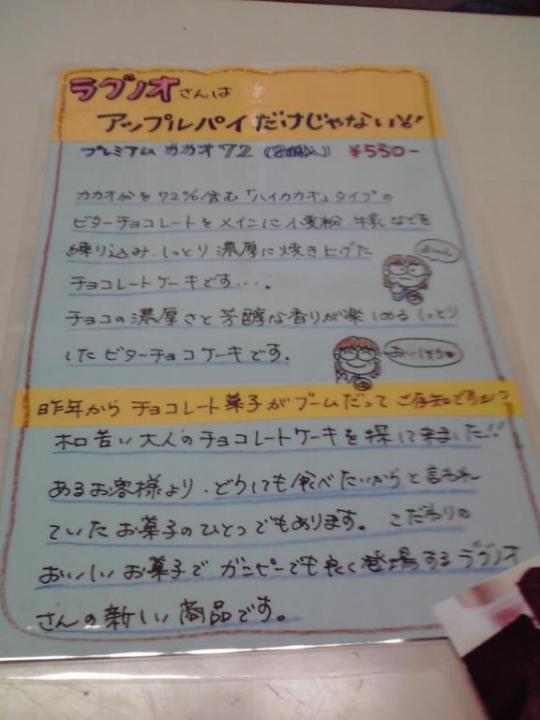 ラグノオさんは
アップルパイだけじゃないど!
プレミアム カカオ'72 (8個入) ¥550-
カカオ分を72%含む「ハイカカオ」タイプの
ビターチョコレートをメインに小麦粉 牛乳などを
練り込み、しっとり濃厚に焼き上げた
チョコレートケーキです・・・。
チョコの濃厚さと芳醇な香りが楽しめるしっとり
したビターチョコケーキです.
昨年から チョコレート菓子がブームだって ご存知ですか?
ホロ苦い大人のチョコレートケーキを探して来ました!!
あるお客様より、どうしても食べたいからと言われ
ていたお菓子のひとつでもあります。 こだわりの
おいしいお菓子で ガニピーでも良く登場するラグノオ
さんの新しい商品です。